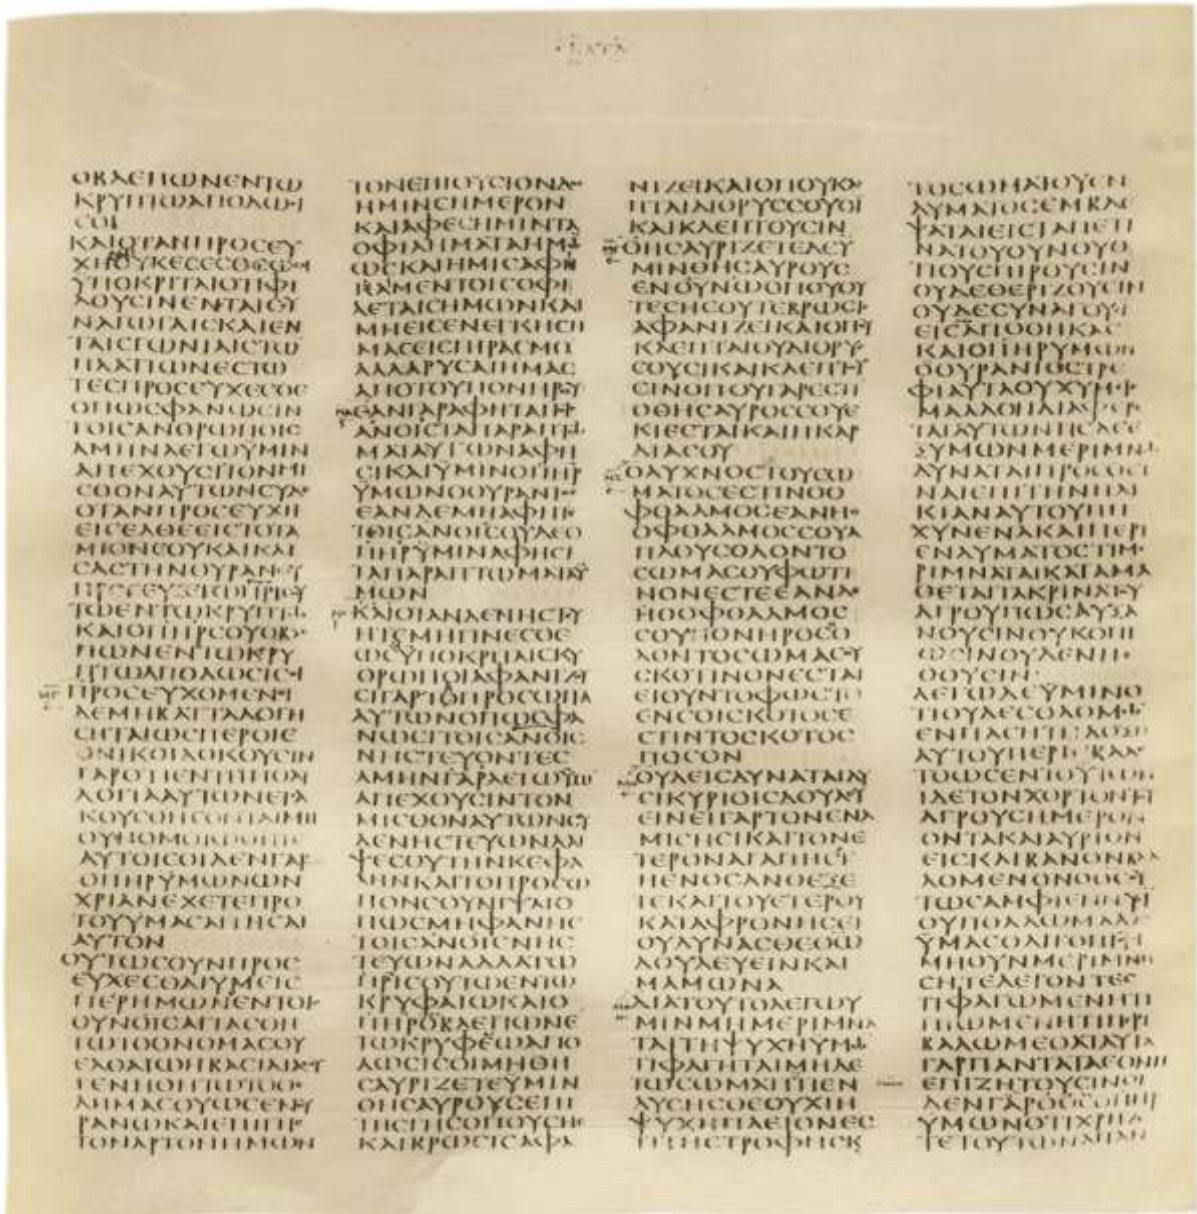 ΟΒΛΕΠΩΝΕΝΤΩ
ΚΡΥΠΤΩΑΠΟΔΩϹΙ
ϹΟΙ
ΚΑΙΟΤΑΝΠΡΟϹΕΥ
ΥΠΟΚΡΙΤΑΙΟΤΙΦΙ
ΛΟΥϹΙΝΕΝΤΑΙϹΥ
ΝΑΓΩΓΑΙϹΚΑΙΕΝ
ΤΑΙϹΓΩΝΙΑΙϹΤΩ
ΠΛΑΤΙΩΝΕϹΤΩ
ΤΕϹΠΡΟϹΕΥΧΕϹΘΕ
ΟΠΩϹΦΑΝΩϹΙΝ
ΤΟΙϹΑΝΘΡΩΠΟΙϹ
ΑΜΗΝΛΕΓΩΥΜΙΝ
ΑΠΕΧΟΥϹΙΤΟΝΜΙ
ϹΘΟΝΑΥΤΩΝϹΥΔΕ
ΟΤΑΝΠΡΟϹΕΥΧΗ
ΕΙϹΕΛΘΕΕΙϹΤΟΤΑ
ΜΙΟΝϹΟΥΚΑΙΚΛΙ
ϹΑϹΤΗΝΘΥΡΑΝϹΟΥ
ΠΡΟϹΕΥΞΕΤΩΠΡΙϹΟΥ
ΤΩΕΝΤΩΚΡΥΠΤΩ
ΚΑΙΟΠΗΡϹΟΥΟΒΛΕ
ΠΩΝΕΝΤΩΚΡΥ
ΠΤΩΑΠΟΔΩϹΙϹΟΙ
ΠΡΟϹΕΥΧΟΜΕΝΟΙ
ΔΕΜΗΒΑΤΤΑΛΟΓΗ
ϹΗΤΑΙΩϹΠΕΡΟΙΕ
ΘΝΙΚΟΙΔΟΚΟΥϹΙΝ
ΓΑΡΟΤΙΕΝΤΗΠΟΛΥ
ΛΟΓΙΑΑΥΤΩΝΕΙϹΑ
ΚΟΥϹΘΗϹΟΝΤΑΙΜΗ
ΟΥΝΟΜΟΙΩΘΗΤΕ
ΑΥΤΟΙϹΟΙΔΕΝΓΑΡ
ΟΠΗΡΥΜΩΝΩΝ
ΧΡΙΑΝΕΧΕΤΕΠΡΟ
ΤΟΥΥΜΑϹΑΙΤΗϹΑΙ
ΑΥΤΟΝ
ΟΥΤΩϹΟΥΝΠΡΟϹ
ΕΥΧΕϹΘΑΙΥΜΕΙϹ
ΠΕΡΗΜΩΝΟΕΝΤΟΙϹ
ΟΥΝΟΙϹΑΓΙΑϹΘΗ
ΤΩΤΟΟΝΟΜΑϹΟΥ
ΕΛΘΑΤΩΗΒΑϹΙΛΙΑϹΟΥ
ΓΕΝΗΘΗΤΩΤΟΘΕ
ΛΗΜΑϹΟΥΩϹΕΝΟΥ
ΡΑΝΩΚΑΙΕΠΙΓΗϹ
ΤΟΝΑΡΤΟΝΗΜΩΝ
ΤΟΝΕΠΙΟΥϹΙΟΝΔΟϹ
ΗΜΙΝϹΗΜΕΡΟΝ
ΚΑΙΑΦΕϹΗΜΙΝΤΑ
ΟΦΙΛΗΜΑΤΑΗΜΩ
ΩϹΚΑΙΗΜΙϹΑΦΗ
ΚΑΜΕΝΤΟΙϹΟΦΙ
ΛΕΤΑΙϹΗΜΩΝΚΑΙ
ΜΗΕΙϹΕΝΕΓΚΗϹΗ
ΜΑϹΕΙϹΠΙΡΑϹΜΟ
ΑΛΛΑΡΥϹΑΙΗΜΑϹ
ΑΠΟΤΟΥΠΟΝΗΡΟΥ
ΕΑΝΓΑΡΑΦΗΤΑΙΤΟΙϹ
ΑΝΟΙϹΤΑΠΑΡΑΠΤΩ
ΜΑΤΑΑΥΤΩΝΑΦΗ
ϹΙΚΑΙΥΜΙΝΟΠΗΡ
ΥΜΩΝΟΟΥΡΑΝΙΟϹ
ΕΑΝΔΕΜΗΑΦΗΤΕ
ΤΟΙϹΑΝΟΙϹΟΥΔΕΟ
ΠΗΡΥΜΙΝΑΦΗϹΙ
ΤΑΠΑΡΑΠΤΩΜΑΤΑΥ
ΜΩΝ
ΚΑΙΟΤΑΝΔΕΝΗϹΤΕΥ
ΗΤΕΜΗΓΙΝΕϹΘΕ
ΩϹΥΠΟΚΡΙΤΑΙϹΚΥ
ΘΡΩΠΟΙΑΦΑΝΙΖΟΥ
ϹΙΓΑΡΤΟΠΡΟϹΩΠΟ
ΑΥΤΩΝΟΠΩϹΦΑ
ΝΩϹΙΤΟΙϹΑΝΟΙϹ
ΝΗϹΤΕΥΟΝΤΕϹ
ΑΜΗΝΓΑΡΛΕΓΩΥΜΙ
ΑΠΕΧΟΥϹΙΝΤΟΝ
ΜΙϹΘΟΝΑΥΤΩΝϹΥ
ΔΕΝΗϹΤΕΥΩΝΑΛΙ
ΨΕϹΟΥΤΗΝΚΕΦΑ
ΛΗΝΚΑΙΤΟΠΡΟϹΩ
ΠΟΝϹΟΥΝΙΨΑΙΟ
ΠΩϹΜΗΦΑΝΗϹ
ΤΟΙϹΑΝΟΙϹΝΗϹ
ΤΕΥΩΝΑΛΛΑΤΩ
ΠΡΙϹΟΥΤΩΕΝΤΩ
ΚΡΥΦΑΙΩΚΑΙΟ
ΠΗΡΟΒΛΕΠΩΝΕ
ΤΩΚΡΥΦΕΩΑΠΟ
ΔΩϹΙϹΟΙΜΗΘΗ
ϹΑΥΡΙΖΕΤΕΥΜΙΝ
ΘΗϹΑΥΡΟΥϹΕΠΙ
ΤΗϹΓΗϹΟΠΟΥϹΗϹ
ΚΑΙΒΡΩϹΙϹΑΦΑ
ΝΙΖΕΙΚΑΙΟΠΟΥΚΛΕ
ΠΤΑΙΔΙΟΡΥϹϹΟΥϹΙ
ΚΑΙΚΛΕΠΤΟΥϹΙΝ
ΘΗϹΑΥΡΙΖΕΤΕΔΕΥ
ΜΙΝΘΗϹΑΥΡΟΥϹ
ΕΝΟΥΝΩΟΠΟΥΟΥ
ΤΕϹΗϹΟΥΤΕΒΡΩϹΙϹ
ΑΦΑΝΙΖΕΙΚΑΙΟΠΟΥ
ΚΛΕΠΤΑΙΟΥΔΙΟΡΥϹ
ϹΟΥϹΙΚΑΙΚΛΕΠΤΟΥ
ϹΙΝΟΠΟΥΓΑΡΕϹΤΙ
ΟΘΗϹΑΥΡΟϹϹΟΥΕ
ΚΙΕϹΤΑΙΚΑΙΗΚΑΡ
ΔΙΑϹΟΥ
ΟΛΥΧΝΟϹΤΟΥϹΩ
ΜΑΤΟϹΕϹΤΙΝΟΟ
ΦΘΑΛΜΟϹΕΑΝΗ
ΟΦΘΑΛΜΟϹϹΟΥΑ
ΠΛΟΥϹΟΛΟΝΤΟ
ϹΩΜΑϹΟΥΦΩΤΙ
ΝΟΝΕϹΤΕΕΑΝΔΕ
ΗΟΟΦΘΑΛΜΟϹ
ϹΟΥΠΟΝΗΡΟϹΟ
ΛΟΝΤΟϹΩΜΑϹΟΥ
ϹΚΟΤΙΝΟΝΕϹΤΑΙ
ΕΙΟΥΝΤΟΦΩϹΤΟ
ΕΝϹΟΙϹΚΟΤΟϹΕ
ϹΤΙΝΤΟϹΚΟΤΟϹ
ΠΟϹΟΝ
ΟΥΔΕΙϹΔΥΝΑΤΑΙΔΥ
ϹΙΚΥΡΙΟΙϹΔΟΥΛΕΥ
ΕΙΝΕΙΓΑΡΤΟΝΕΝΑ
ΜΙϹΗϹΙΚΑΙΤΟΝΕ
ΤΕΡΟΝΑΓΑΠΗϹΕΙ
ΗΕΝΟϹΑΝΘΕΞΕ
ΤΕΚΑΙΤΟΥΕΤΕΡΟΥ
ΚΑΤΑΦΡΟΝΗϹΕΙ
ΟΥΔΥΝΑϹΘΕΘΩ
ΔΟΥΛΕΥΕΙΝΚΑΙ
ΜΑΜΩΝΑ
ΔΙΑΤΟΥΤΟΛΕΓΩΥ
ΜΙΝΜΗΜΕΡΙΜΝΑ
ΤΑΙΤΗΨΥΧΗΥΜΩ
ΤΙΦΑΓΗΤΑΙΜΗΔΕ
ΤΩϹΩΜΑΤΙΤΙΕΝ
ΔΥϹΗϹΘΕΟΥΧΙΗ
ΨΥΧΗΠΛΕΙΟΝΕϹ
ΤΙΤΗϹΤΡΟΦΗϹΚ
ΤΟϹΩΜΑΤΟΥΕΝ
ΔΥΜΑΤΟϹΕΜΒΛΕ
ΨΑΤΑΙΕΙϹΤΑΠΕΤΙ
ΝΑΤΟΥΟΥΝΟΥΟ
ΤΙΟΥϹΠΙΡΟΥϹΙΝ
ΟΥΔΕΘΕΡΙΖΟΥϹΙΝ
ΟΥΔΕϹΥΝΑΓΟΥϹΙ
ΕΙϹΑΠΟΘΗΚΑϹ
ΚΑΙΟΠΗΡΥΜΩΝ
ΟΟΥΡΑΝΙΟϹΤΡΕ
ΦΙΑΥΤΑΟΥΧΥΜΙϹ
ΜΑΛΛΟΝΔΙΑΦΕΡΕ
ΤΑΙΑΥΤΩΝΤΙϹΔΕΕ
ΞΥΜΩΝΜΕΡΙΜΝΩ
ΔΥΝΑΤΑΙΠΡΟϹΘΕΙ
ΝΑΙΕΠΙΤΗΝΗΛΙ
ΚΙΑΝΑΥΤΟΥΠΗ
ΧΥΝΕΝΑΚΑΙΠΕΡΙ
ΕΝΔΥΜΑΤΟϹΤΙΜΕ
ΡΙΜΝΑΤΑΙΚΑΤΑΜΑ
ΘΕΤΑΙΤΑΚΡΙΝΑΤΟΥ
ΑΓΡΟΥΠΩϹΑΥΞΑ
ΝΟΥϹΙΝΟΥΚΟΠΙ
ΩϹΙΝΟΥΔΕΝΗ
ΘΟΥϹΙΝ
ΛΕΓΩΔΕΥΜΙΝΟ
ΤΙΟΥΔΕϹΟΛΟΜΩ
ΕΝΠΑϹΗΤΗΔΟΞΗ
ΑΥΤΟΥΠΕΡΙΕΒΑΛΕ
ΤΟΩϹΕΝΤΟΥΤΩΝ
ΙΔΕΤΟΝΧΟΡΤΟΝΤΟΥ
ΑΓΡΟΥϹΗΜΕΡΟΝ
ΟΝΤΑΚΑΙΑΥΡΙΟΝ
ΕΙϹΚΛΙΒΑΝΟΝΒΑΛ
ΛΟΜΕΝΟΝΟΘϹΟΥ
ΤΩϹΑΜΦΙΕΝΝΥϹΙ
ΟΥΠΟΛΛΩΜΑΛΛΟ
ΥΜΑϹΟΛΙΓΟΠΙϹΤΟΙ
ΜΗΟΥΝΜΕΡΙΜΝΗ
ϹΗΤΕΛΕΓΟΝΤΕϹ
ΤΙΦΑΓΩΜΕΝΗΤΙ
ΠΙΩΜΕΝΗΤΙΠΕΡΙ
ΒΑΛΩΜΕΘΑΤΑΥΤΑ
ΓΑΡΠΑΝΤΑΤΑΕΘΝΗ
ΕΠΙΖΗΤΟΥϹΙΝΟΙ
ΔΕΝΓΑΡΟΘϹΟΠΗΡ
ΥΜΩΝΟΤΙΧΡΗΖΕ
ΤΕΤΟΥΤΩΝΑΠΑΝ